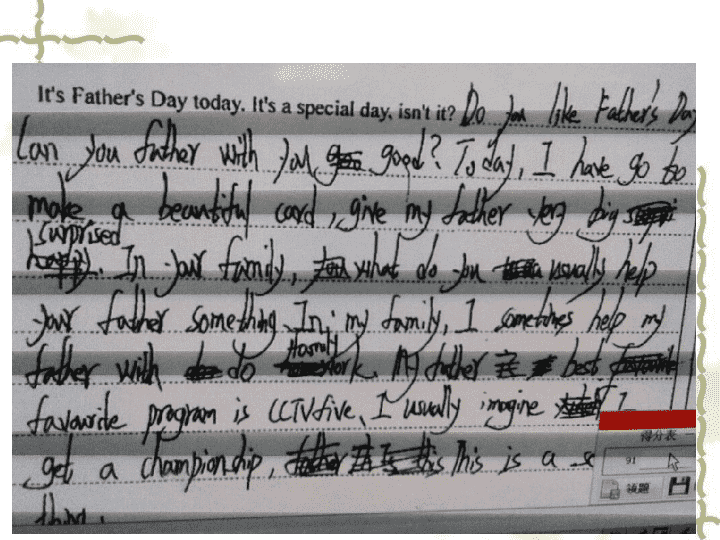 It's Father's Day today. It's a special day, isn't it? Do you like Father's Day
Can you father with you good? Today, I have go to
make a beautiful card, give my father very big
surprised
. In your family, what do you usually help
your father something. In my family, I sometimes help my
father with do work. My father best
favourite program is CCTV five, I usually imagine I
get a championship, This is a
thing.
得分表
91